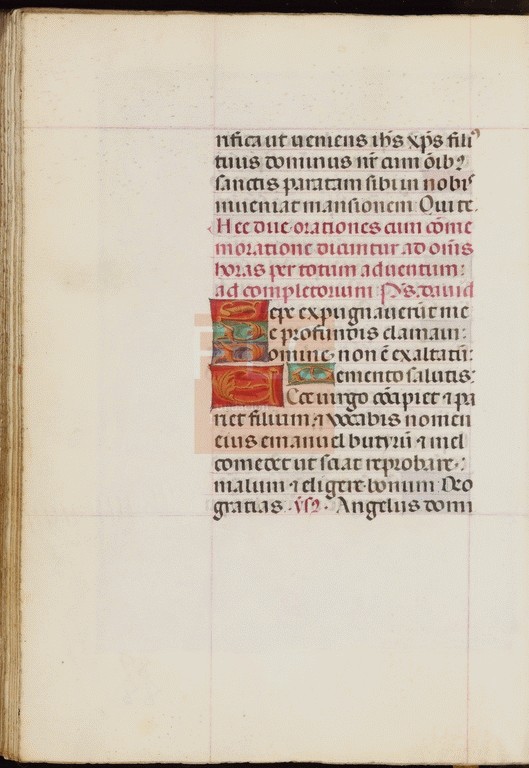 rifica ut ueniens ihs xps fili⁹
tuus dominus nr̄ cum oībꝰ
sanctis paratam sibi in nobis
inueniat mansionem Qui te.
Hee due orationes cum cōme
moratione dicuntur ad om̄s
horas per totum aduentum:
ad completorium Ps. dauid
Sepe expugnauerūt me
De profundis clamaui:
Domine, non ē exaltatū:
Memento salutis:
Ecce uirgo cōcipiet ⁊ pa
riet filium, ⁊ vocabis nomen
eius emanuel butyrū ⁊ mel
comedet ut sciat reprobare.:
malum ⁊ eligere bonum Deo
gratias. v̄s. Angelus domi